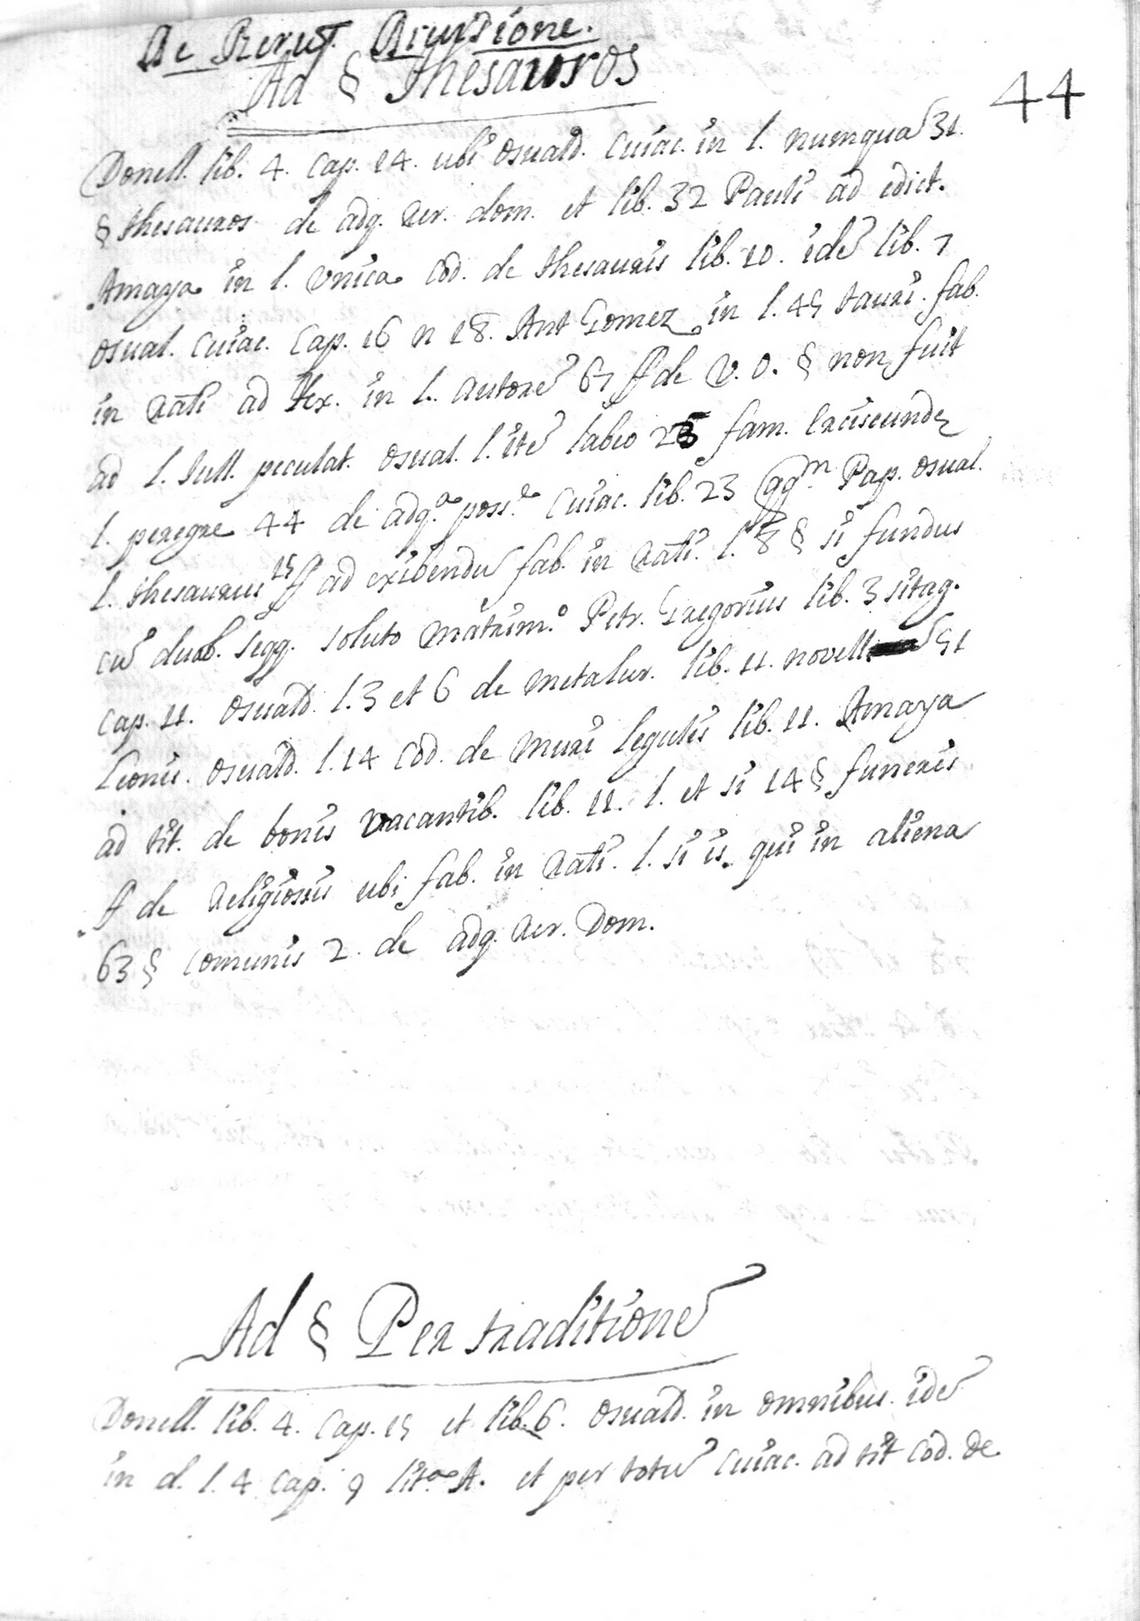 De Rerum Divisione.
Ad § thesauros
44
Donell. lib. 4. cap. 14. ubi osuald. Cuiac. in l. numqua 31.
§ thesauros de adq. rer. dom. et lib. 32 Pauli ad edict.
Amaya in l. unica Cod. de thesauris lib. 10. idē lib. 7
osual. Cuiac. cap. 16 n 18. Ant Gomez in l. 45 tauri. fab.
in rati ad in l. autorē 67 ff de v. o. § non fuit
ad l. Jull. peculat. osual. l. itē labeo fam. Erciscunde
l. peregre 44 de adq.ᵃ poss.ᵉ Cuiac. lib. 23 qq.ⁿ Pap. osual.
l. thesaurus 15 ff ad exibendū fab. in rati. l. 8 § si fundus
cū duob. seqq. soluto matrim.º Petr. Gregorius lib. 3 sitag.
cap. 11. osuald. l. 3 et 6 de metalur. lib. 11. novell 51
Leonis. osuald. l. 14 Cod. de muri legulis lib. 11. Amaya
ad tit. de bonis vacantib. lib. 11. l. et si 14 § funeris
ff de religiosis ubi fab. in rati. l. si is qui in aliena
63 § comunis 2. de adq. rer. Dom.
Ad § Per traditionē
Donell. lib. 4. cap. 15 et lib. 6. osuald. in omnibus. idē
in d. l. 4 cap. 9 lit.ᵃ A. et per totū Cuiac. ad tit Cod. de